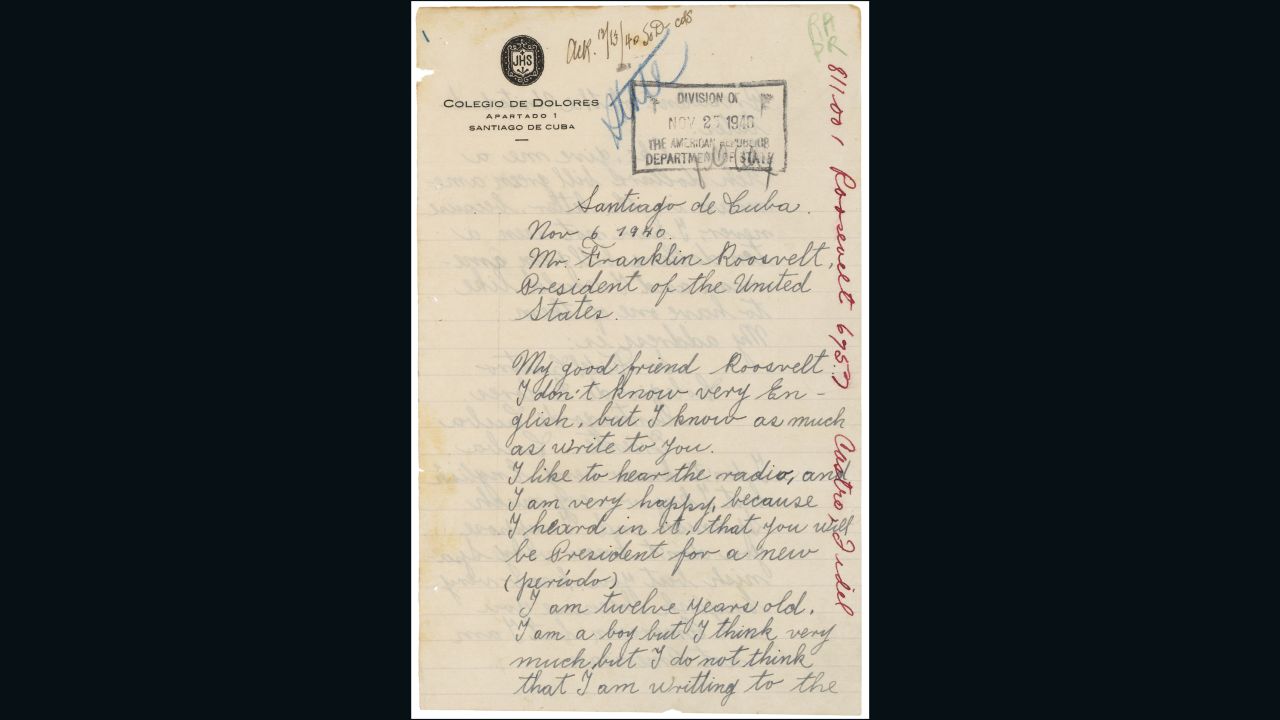 JHS
COLEGIO DE DOLORES
APARTADO 1
SANTIAGO DE CUBA
State
RA
DIVISION OF
NOV 27 1940
THE AMERICAN REPUBLICS
DEPARTMENT OF STATE
811.001 Roosevelt
Castro, Fidel
Santiago de Cuba.
Nov 6 1940.
Mr. Franklin Roosvelt,
President of the United
States.
My good friend Roosvelt
I don't know very En-
glish, but I know as much
as write to you.
I like to hear the radio, and
I am very happy, because
I heard in it, that you will
be President for a new
(período)
I am twelve years old.
I am a boy but I think very
much but I do not think
that I am writting to the